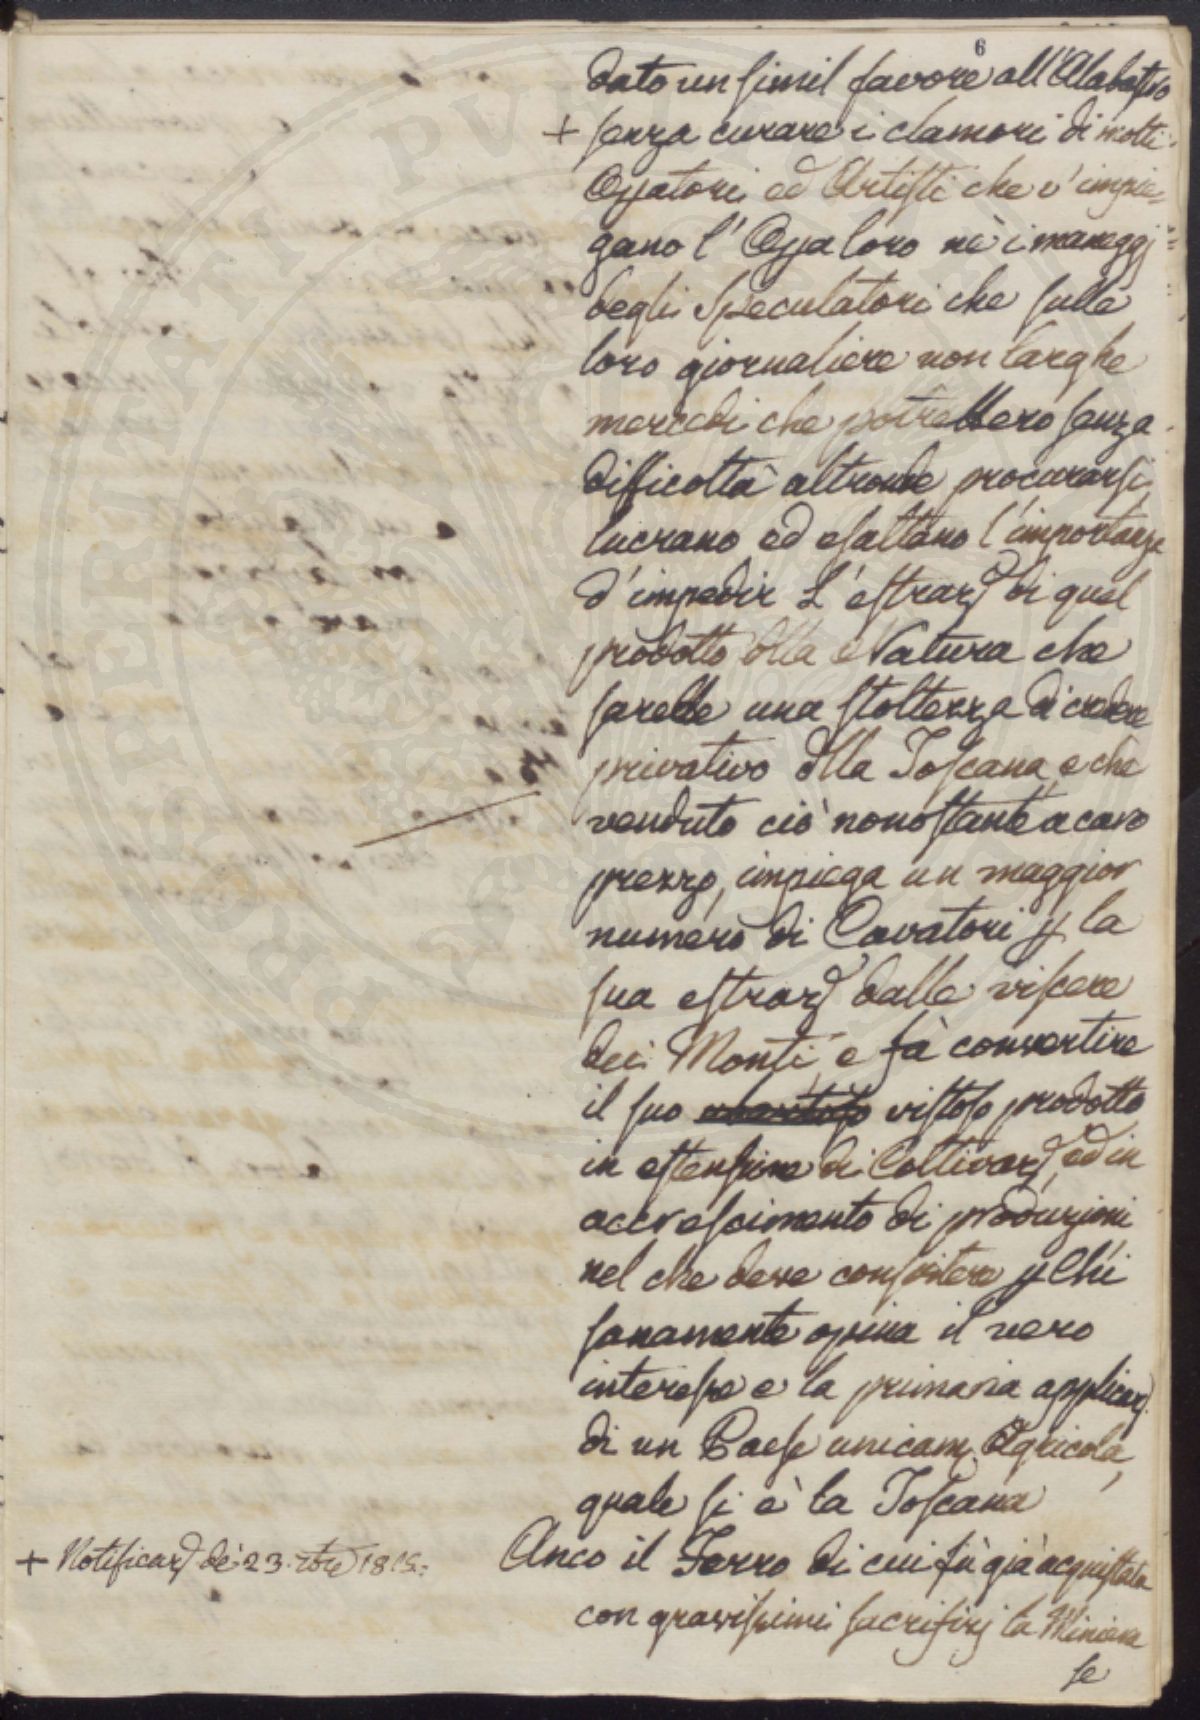 6
dato un simil favore all'Alabastro
+ senza curare i clamori di molti
Opatori ed Artisti che v'impie=
gano l'Opa loro nè i maneggj
degli Speculatori che sulle
loro giornaliere non larghe
mercedi che potrebbero senza
difficoltà altronde procurarsi,
lucrano ed esaltano l'importanza
d'impedir l'estraz.e di quel
prodotto dlla Natura che
sarebbe una stoltezza di credere
privativo dlla Toscana, e che
venduto ciò nonostante a caro
prezzo, impiega un maggior
numero di Cavatori p la
sua estraz.e dalle viscere
dei Monti, e fà convertire
il suo vistoso prodotto
in estensione di Coltivaz.e, ed in
accrescimento di produzioni
nel che deve consistere p chi
sanamente opina il vero
interesse e la primaria applicaz.
di un Paese unicam. Agricola,
quale si è la Toscana
Anco il Ferro di cui fù già acquistata
con gravissimi sacrifizj la Miniera
se
+ Notificaz.e de' 23. rbre 1815.